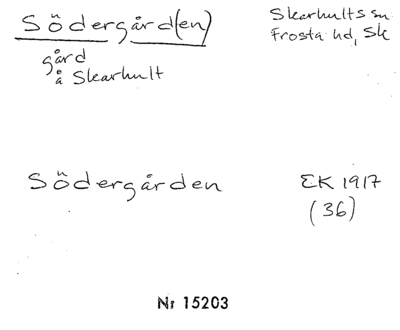 Södergård(en)
Skarhults sn
Frosta hd, Sk
gård
å Skarhult
Södergården
EK 1917
(36)
Nr 15203